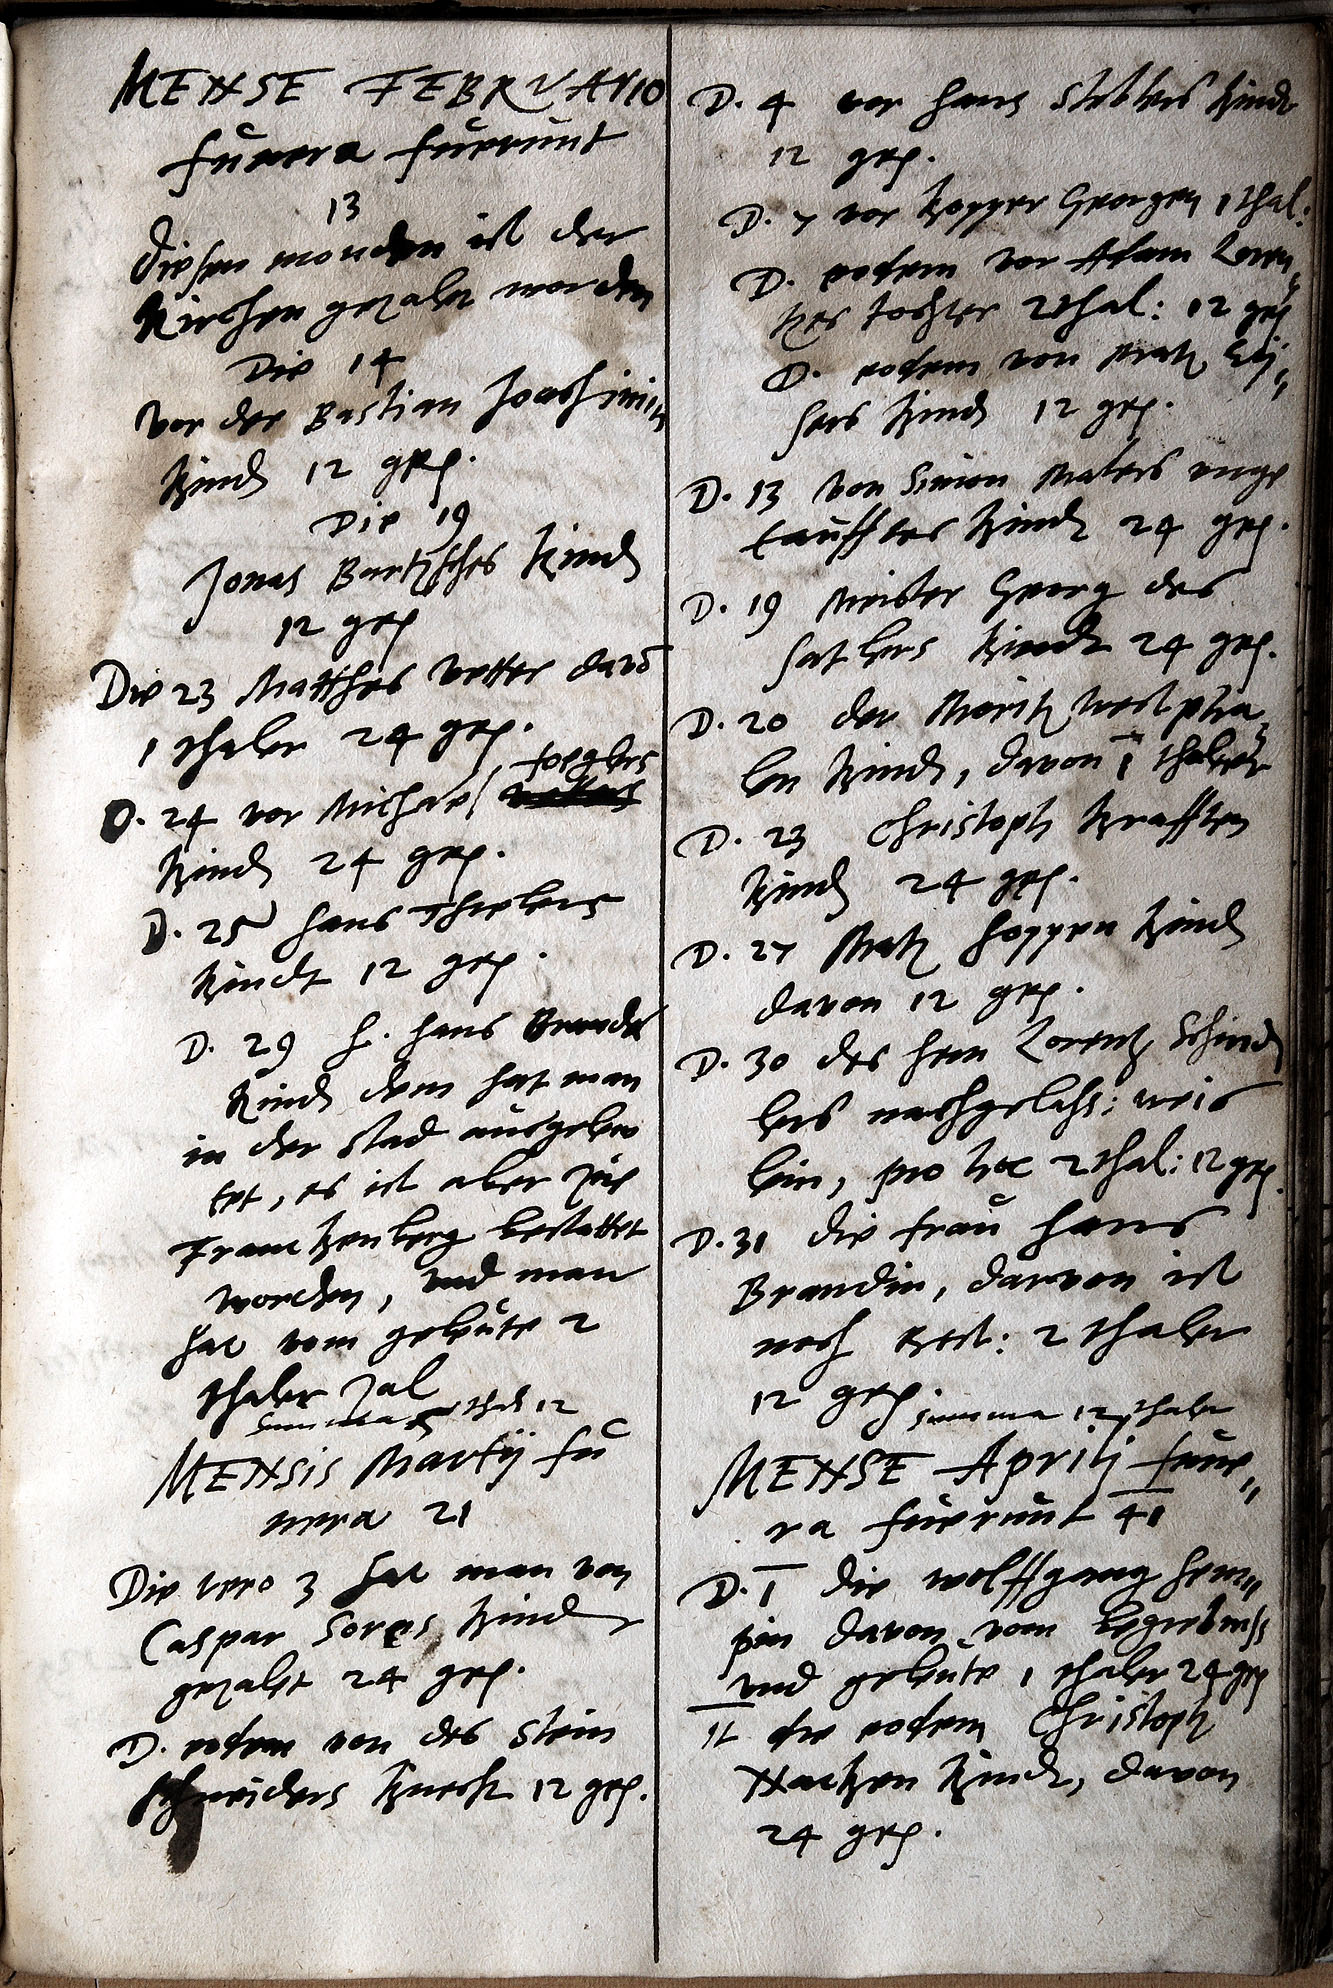 MENSE FEBRVARIO
funera fuerunt
13
Diesen monden ist der
Kirchen gezalet worden
Die 14
vor der Bastian Joachimin
Kindt 12 gr.
Die 19
Jonas Kindt
12 gr
Die 23 Matthes vetter davō
1 thaler 24 gr.
D. 24 vor Michael
Kindt 24 gr.
D. 25 Hans Thielers
Kindt 12 gr.
D. 29 H. Hans Brandes
Kindt dem hat man
in der stad ausgeleu
tet, es ist aber zue
Franckenberg bestattet
worden, und man
hat vom geleute 2
thaler zal
Summa 5 thal 12
MENSIS Martij fu
nera 21
Die vero 3 hat man von
Caspar Kindt
gezalet 24 gr.
D. eodem von des stein
schneiders Knecht 12 gr.
D. 4 vor Hans Kindt
12 gr.
D. 7 vor Georgen 1 thal:
D. eodem vor Adam Loren
tzes tochter 2 thal: 12 gr
D. eodem von Matz
Kindt 12 gr.
D. 13 von Simon Maters unge
tauftes Kindt 24 gr.
D. 19 Meister Georg des
satlers Kindt 24 gr.
D. 20 der Moritz Westpha
len Kindt, davon 1 thaler
D. 23 Christoph Krafften
Kindt 24 gr.
D. 27 Matz Hoppen Kindt
davon 12 gr.
D. 30 des Hern Lorentz Schind
lers nachgelass: weib
lein, pro hoc 2 thal: 12 gr.
D. 31 die frau Hans
Brandin, darvon ist
noch rest: 2 thaler
12 gr.
Summa 12 thaler
MENSE Aprilj fune
ra fuerunt 41
D. 1 die wolffgang
davon vom begrebniss
und geleute 1 thaler 24 gr
die eodem Christoph
Kindt, davon
24 gr.